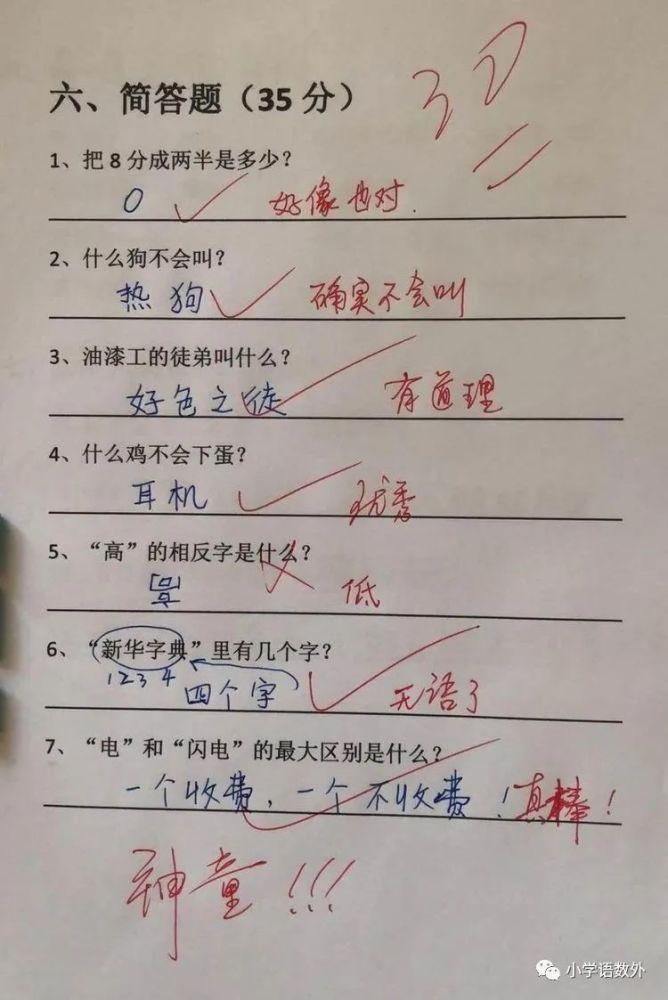 六、简答题（35 分）
30
1、把 8 分成两半是多少？
0 好像也对.
2、什么狗不会叫？
热狗 确实不会叫
3、油漆工的徒弟叫什么？
好色之徒 有道理
4、什么鸡不会下蛋？
耳机 优秀
5、“高”的相反字是什么？
低
6、“新华字典”里有几个字？
1 2 3 4 四个字 无语了
7、“电”和“闪电”的最大区别是什么？
一个收费，一个不收费！真棒！
神童!!!
小学语数外